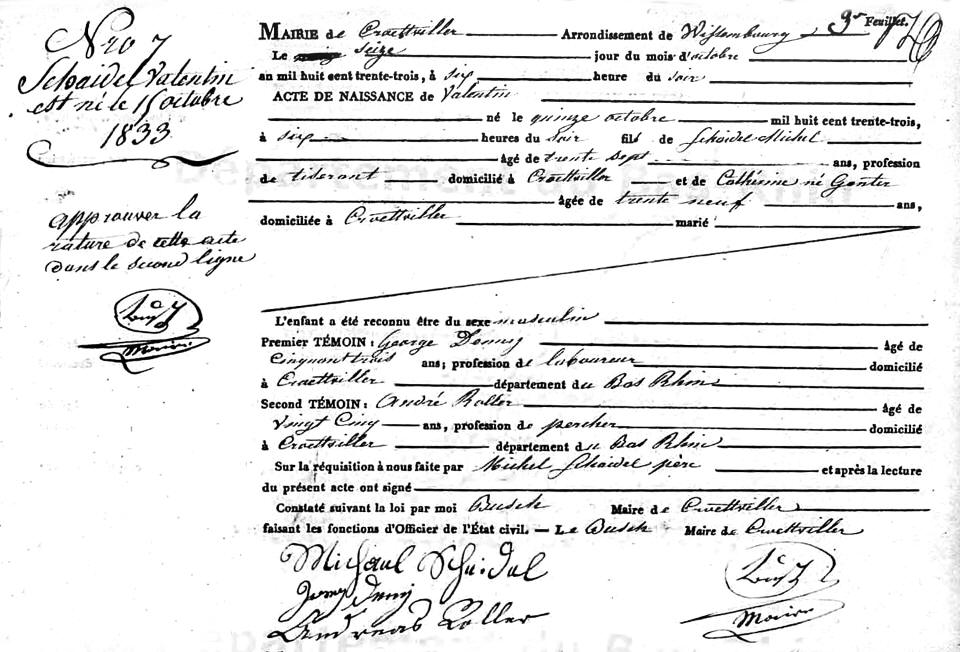 Nro 7
Schaidel Valentin
est né le 15 octobre
1833
approuver la
rature de cette acte
dans le second ligne
Maire
3e Feuillet.
MAIRIE de Croettviller Arrondissement de Wissembourg
Le seize jour du mois d'octobre
an mil huit cent trente-trois, à six heure du soir
ACTE DE NAISSANCE de Valentin
né le quinze octobre mil huit cent trente-trois,
à six heures du soir fils de Schaidel Michel
âgé de trente sept ans, profession
de tiserant domicilié à Croettviller et de Cathérine né Gonter
âgée de trente neuf ans,
domiciliée à Croettviller marié
L'enfant a été reconnu être du sexe masculin
Premier TÉMOIN : George Denny âgé de
Cinquant trois ans; profession de laboureur domicilié
à Croettviller département du Bas Rhin
Second TÉMOIN : André Roller âgé de
Vingt Cinq ans, profession de percher domicilié
à Croettviller département du Bas Rhin
Sur la réquisition à nous faite par Michel Schaidel père et après la lecture
du présent acte ont signé
Constaté suivant la loi par moi Busch Maire de Croettviller
faisant les fonctions d'Officier de l'État civil. — Le Busch Maire de Croettviller
Michael Scheidel
Andreas Roller
Maire